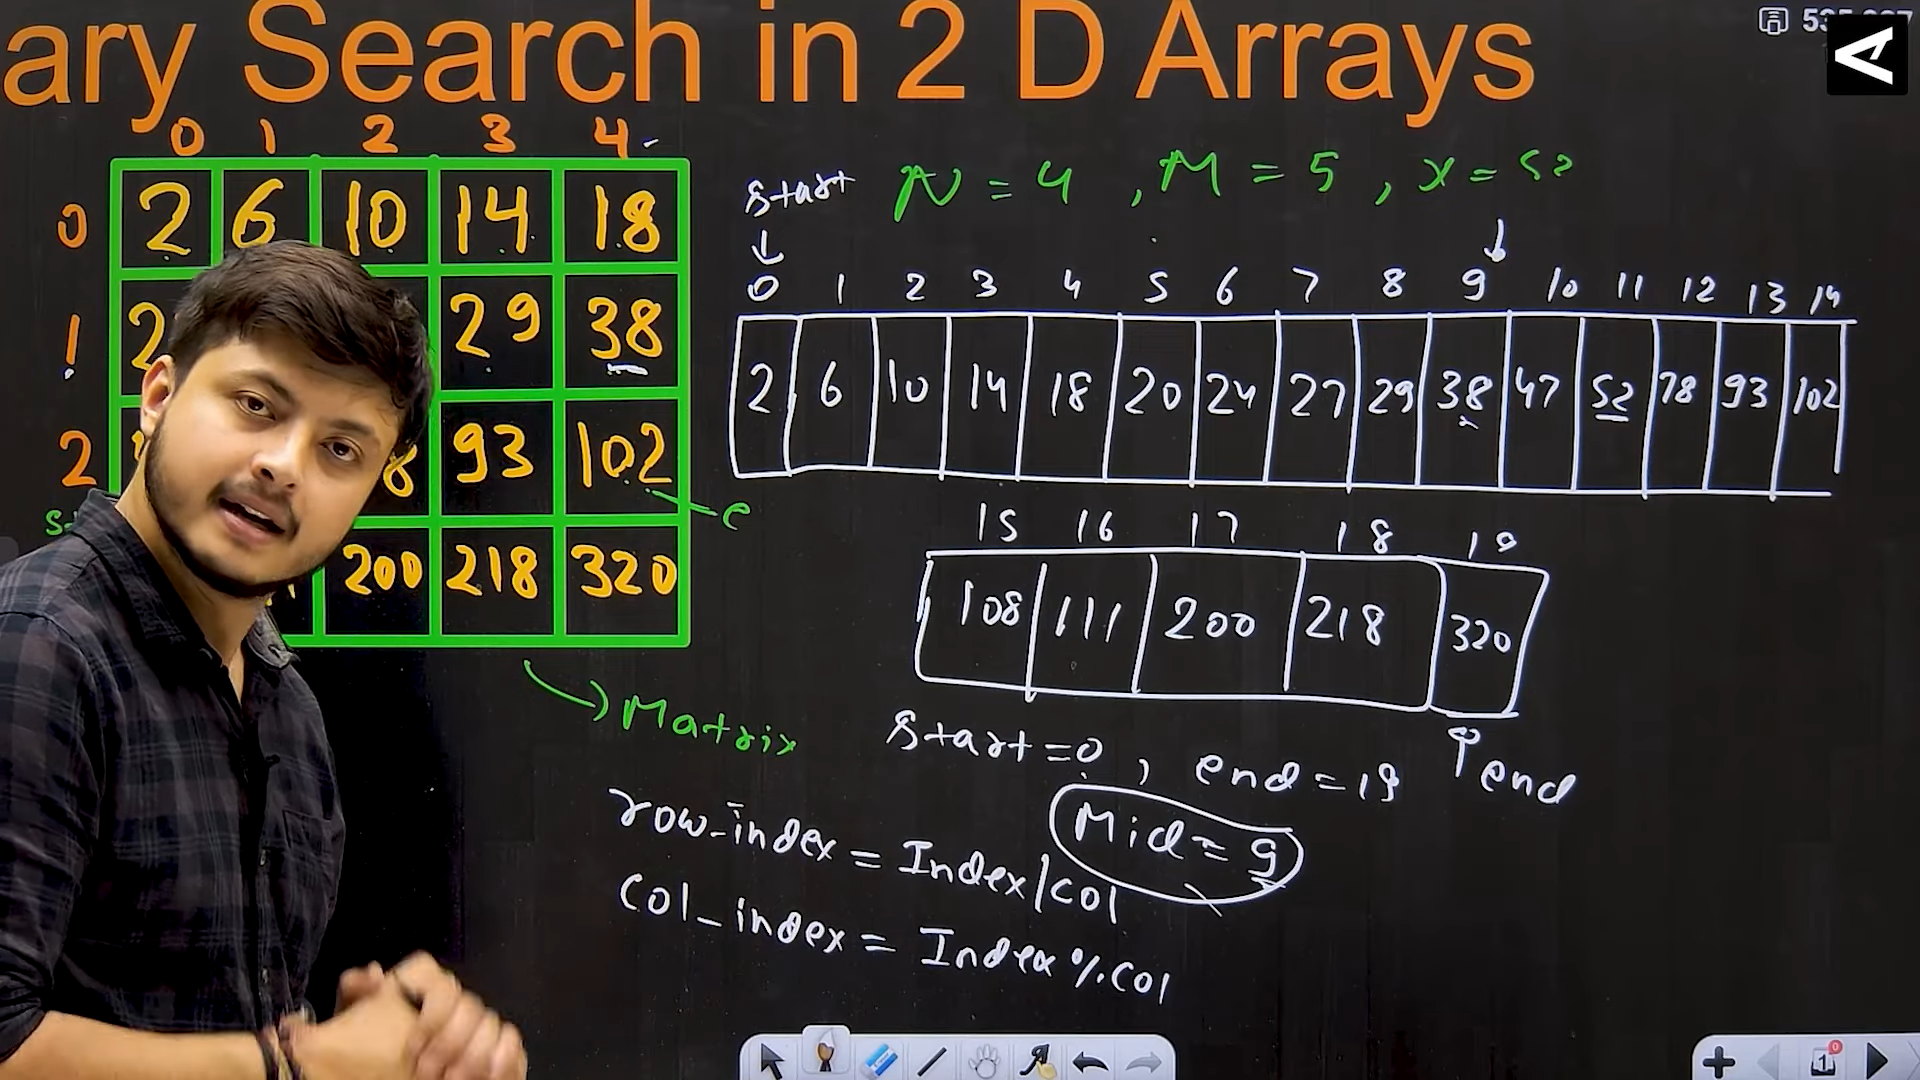 ary Search in 2 D Arrays
0 1 2 3 4
0 2 6 10 14 18
1 29 38
2 93 102
e
200 218 320
Matrix
start N = 4 , M = 5 , x = 52
0 1 2 3 4 5 6 7 8 9 10 11 12 13 14
2 6 10 14 18 20 24 27 29 38 47 52 78 93 102
15 16 17 18 19
108 111 200 218 320
start = 0 , end = 19
end
Mid = 9
row-index = Index/col
col_index = Index % col
1
0